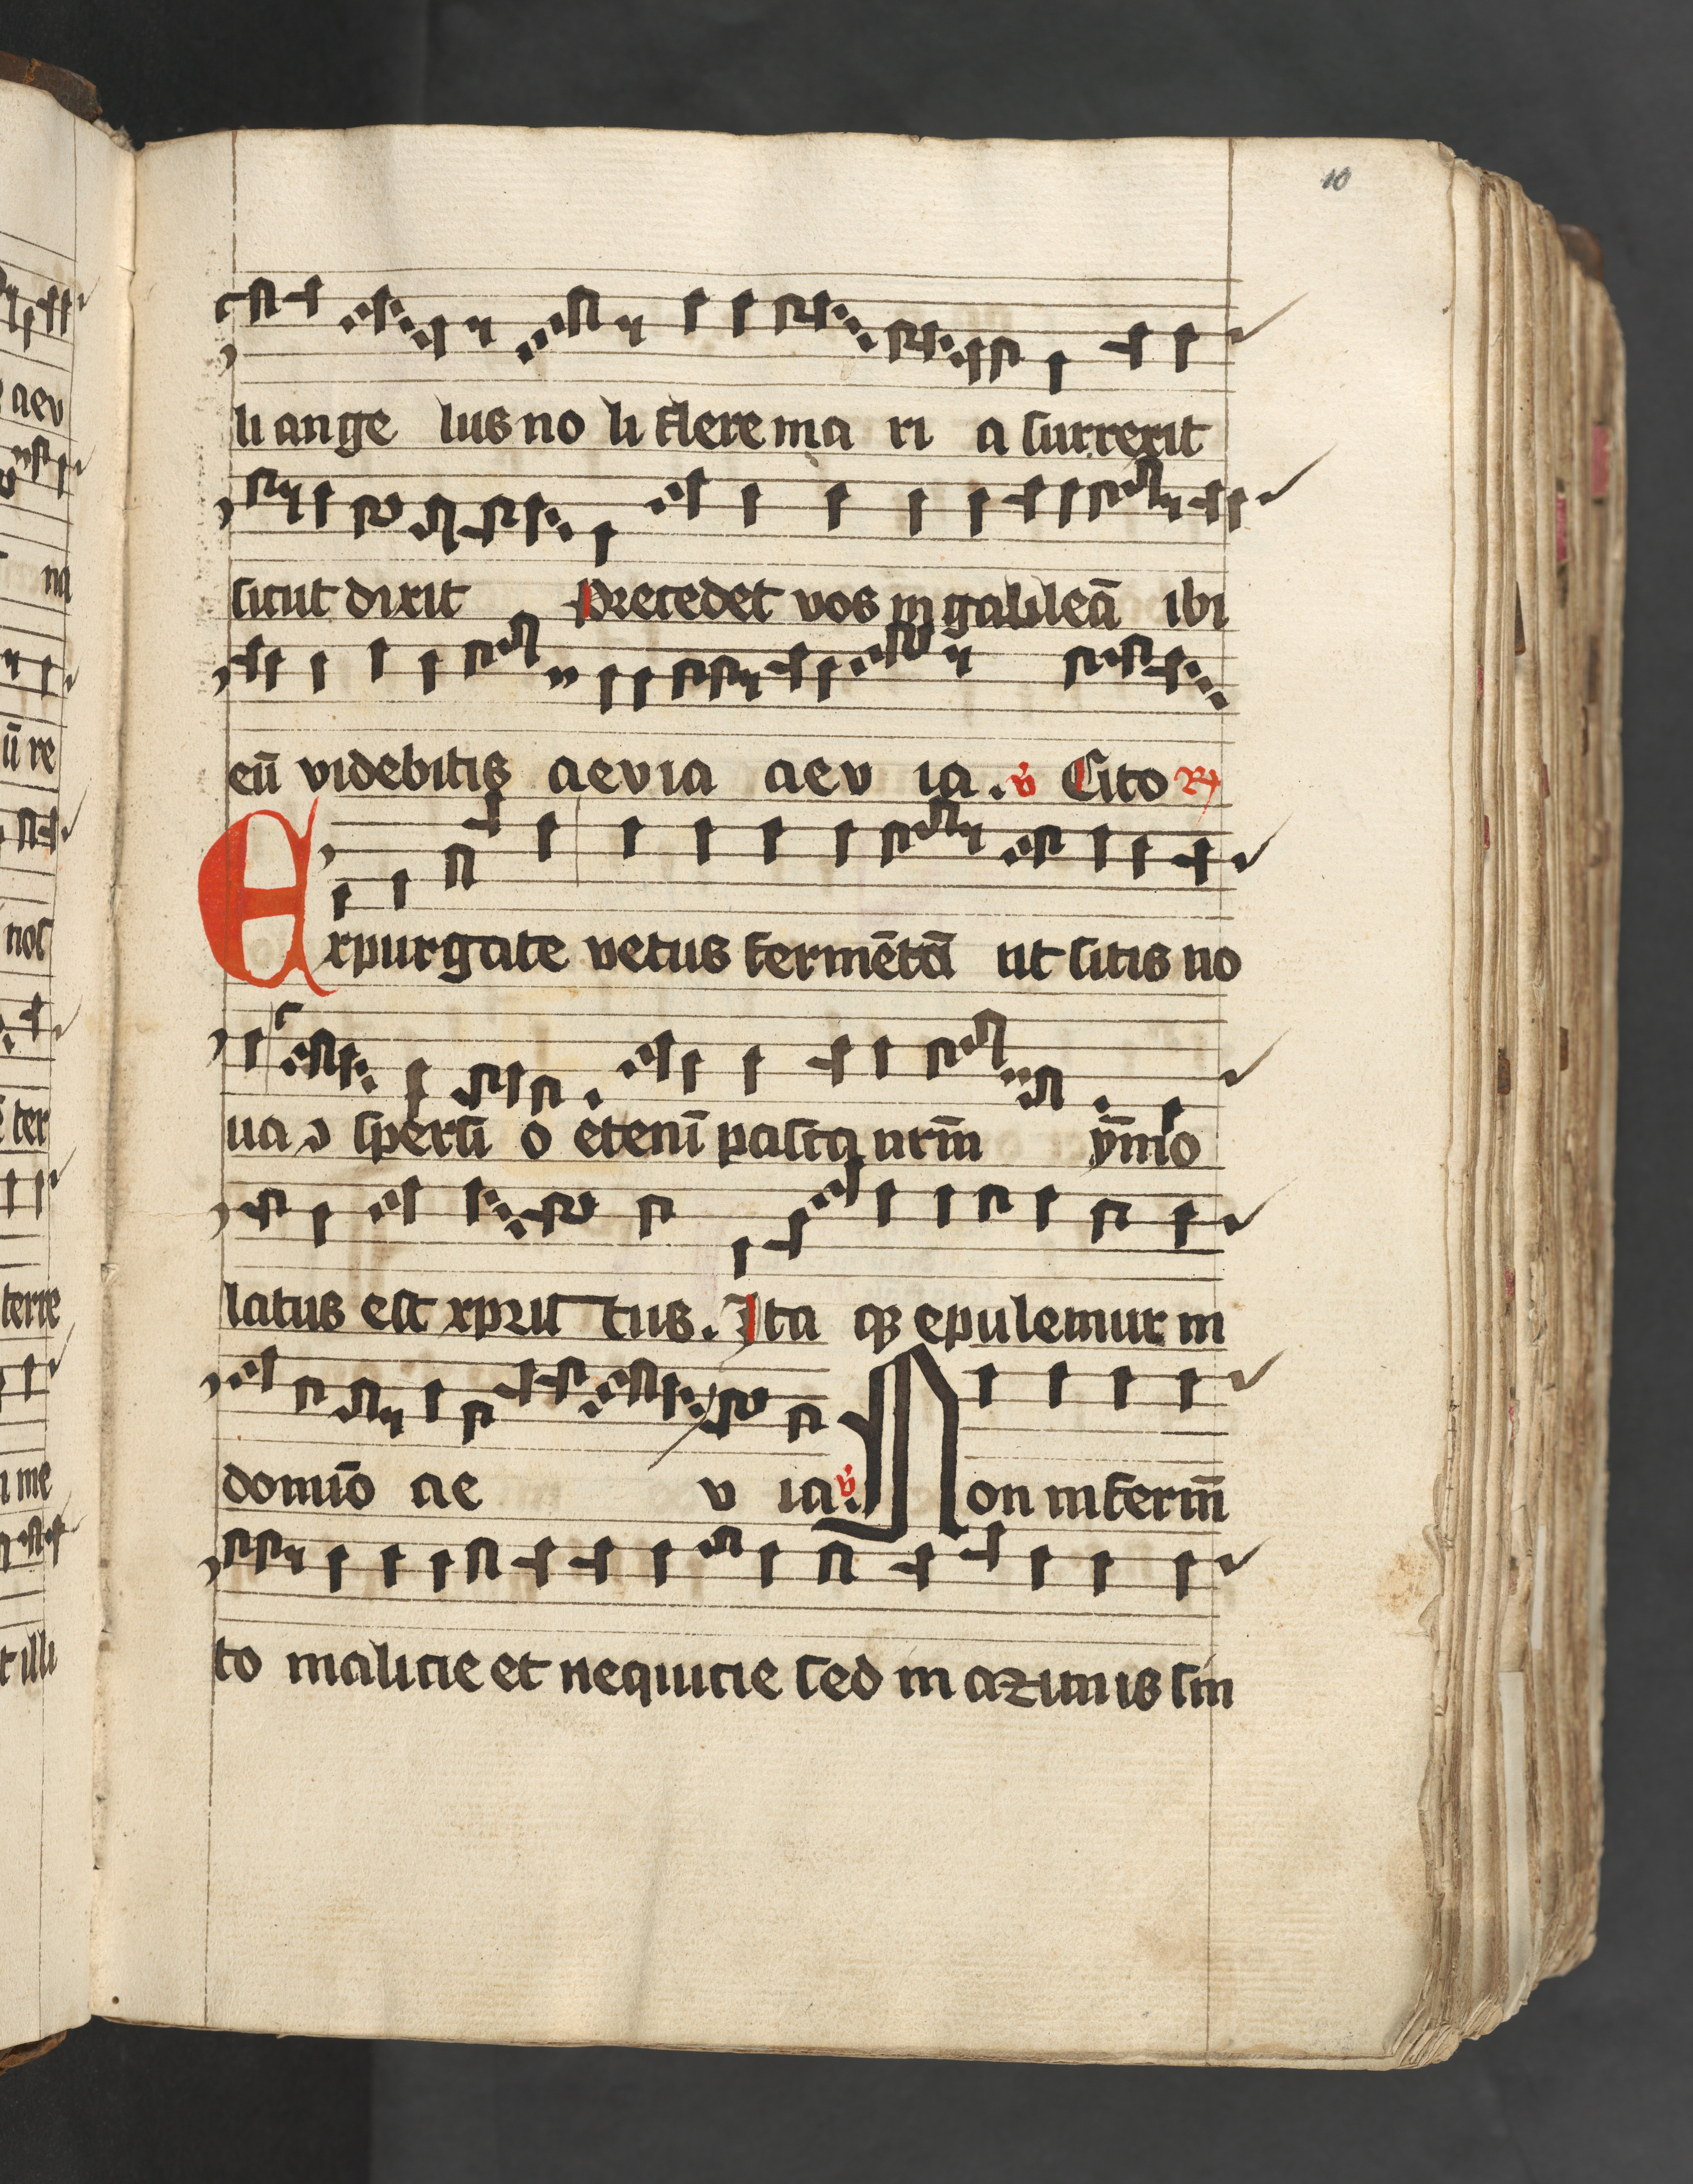 10
li ange lus no li flere ma ri a surrexit
sicut dixit Precedet vos in galileā ibi
eū videbitis aevia aev ia . v̉ Cito R
Expurgate vetus fermētū ut sitis no
ua ɔ spersi o etenī pasca nrm̄ ym̄o
latus est xpristus . Ita qz epulemur in
domīo ae v ia . v̉ Non in ferm̄
to malicie et nequicie sed in azimis sin